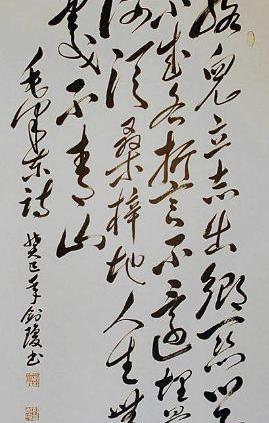 孩兒立志出鄉関
不成名誓不還埋骨
何須桑梓地人生無
處不青山
毛澤東詩
癸巳年
书